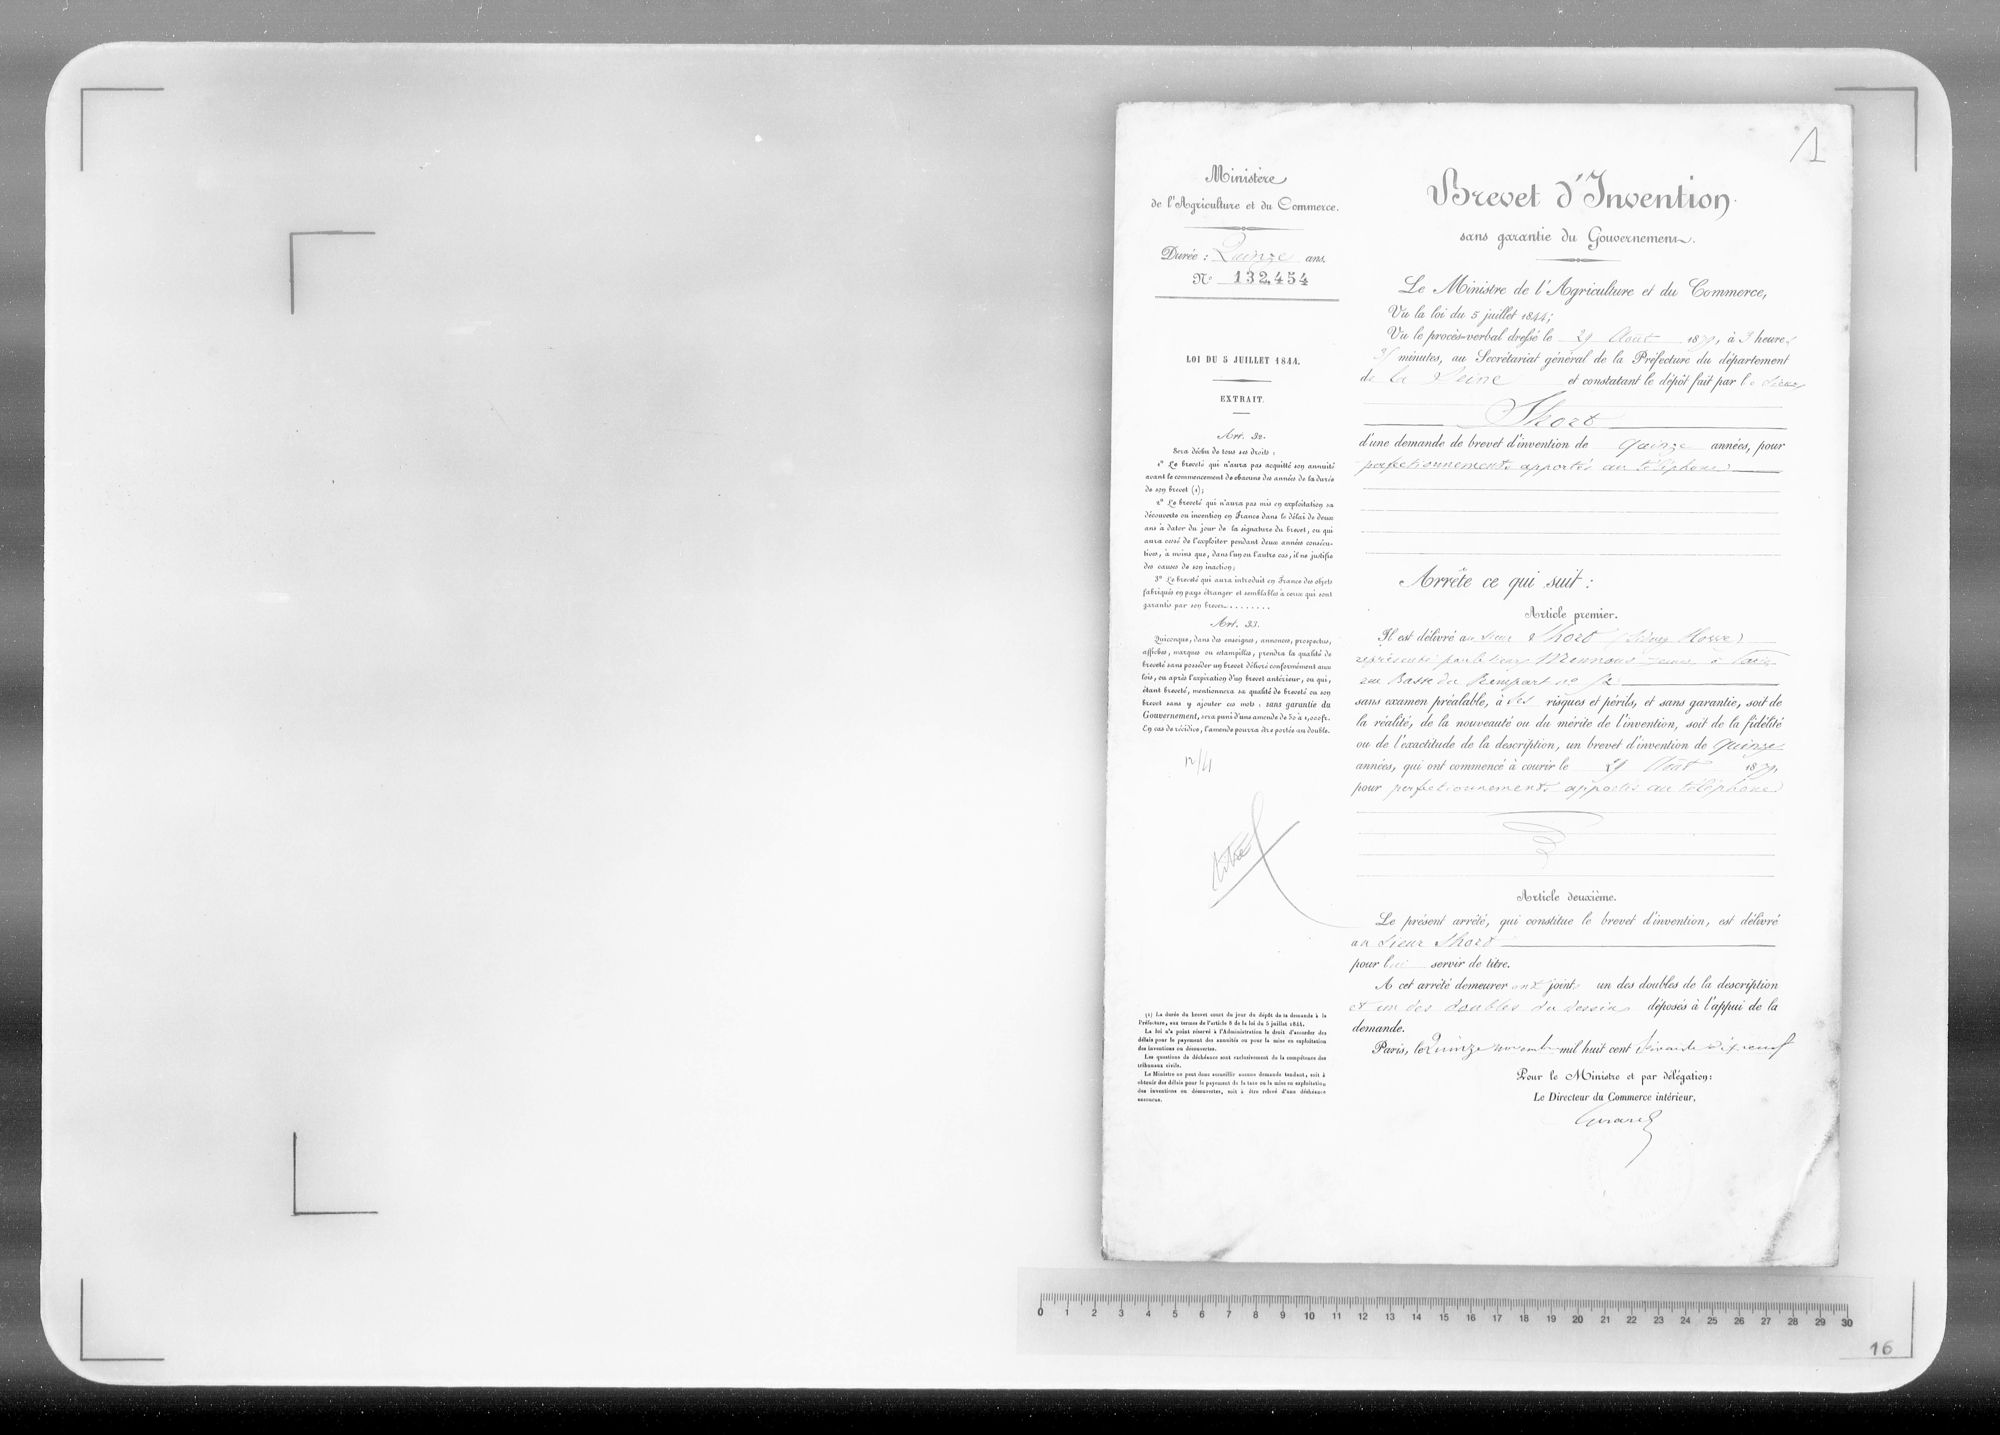 1
Ministère
de l'Agriculture et du Commerce.
Durée : Quinze ans.
N° 132,454
LOI DU 5 JUILLET 1844.
EXTRAIT.
Art. 32.
Sera déchu de tous ses droits :
1° Le breveté qui n'aura pas acquitté son annuité
avant le commencement de chacune des années de la durée
de son brevet (1);
2° Le breveté qui n'aura pas mis en exploitation sa
découverte ou invention en France dans le délai de deux
ans à dater du jour de la signature du brevet, ou qui
aura cessé de l'exploiter pendant deux années consécu-
tives, à moins que, dans l'un ou l'autre cas, il ne justifie
des causes de son inaction;
3° Le breveté qui aura introduit en France des objets
fabriqués en pays étranger et semblables à ceux qui sont
garantis par son brevet.........
Art. 33.
Quiconque, dans des enseignes, annonces, prospectus,
affiches, marques ou estampilles, prendra la qualité de
breveté sans posséder un brevet délivré conformément aux
lois, ou après l'expiration d'un brevet antérieur, ou qui,
étant breveté, mentionnera sa qualité de breveté ou son
brevet sans y ajouter ces mots : sans garantie du
Gouvernement, sera puni d'une amende de 50 à 1,000 fr.
En cas de récidive, l'amende pourra être portée au double.
12/11
titré
(1) La durée du brevet court du jour du dépôt de la demande à la
Préfecture, aux termes de l'article 8 de la loi du 5 juillet 1844.
La loi n'a point réservé à l'Administration le droit d'accorder des
délais pour le payement des annuités ou pour la mise en exploitation
des inventions ou découvertes.
Les questions de déchéance sont exclusivement de la compétence des
tribunaux civils.
Le Ministre ne peut donc accueillir aucune demande tendant, soit à
obtenir des délais pour le payement de la taxe ou la mise en exploitation
des inventions ou découvertes, soit à être relevé d'une déchéance
encourue.
Brevet d'Invention
sans garantie du Gouvernement.
Le Ministre de l'Agriculture et du Commerce,
Vu la loi du 5 juillet 1844;
Vu le procès-verbal dressé le 29 Août 1879, à 3 heures
minutes, au Secrétariat général de la Préfecture du département
de la Seine et constatant le dépôt fait par le Sieur
Short
d'une demande de brevet d'invention de quinze années, pour
perfectionnements apportés au téléphone
Arrête ce qui suit :
Article premier.
Il est délivré au Sieur Short (Sidney Howe)
représenté par le Sieur à Paris
rue Basse du Rempart n°
sans examen préalable, à ses risques et périls, et sans garantie, soit de
la réalité, de la nouveauté ou du mérite de l'invention, soit de la fidélité
ou de l'exactitude de la description, un brevet d'invention de quinze
années, qui ont commencé à courir le 29 Août 1879,
pour perfectionnements apportés au téléphone
Article deuxième.
Le présent arrêté, qui constitue le brevet d'invention, est délivré
au Sieur Short
pour lui servir de titre.
A cet arrêté demeureront joints un des doubles de la description
et un des doubles du dessin déposés à l'appui de la
demande.
Paris, le Quinze novembre mil huit cent soixante dix neuf
Pour le Ministre et par délégation:
Le Directeur du Commerce intérieur,
0 1 2 3 4 5 6 7 8 9 10 11 12 13 14 15 16 17 18 19 20 21 22 23 24 25 26 27 28 29 30
16